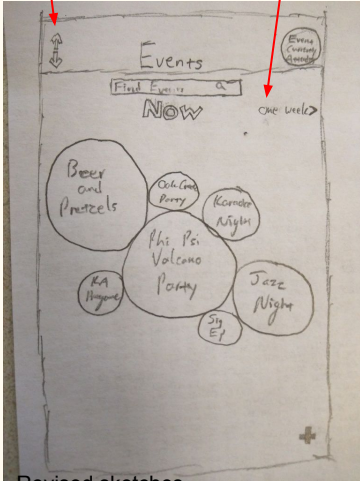 Events
Event
Currently
Find Events
Now
one week>
Beer
and
Pretzels
Party
Karaoke
Night
Phi Psi
Volcano
Party
KA
Jazz
Night
Sig
Ep
+
Revised sketches